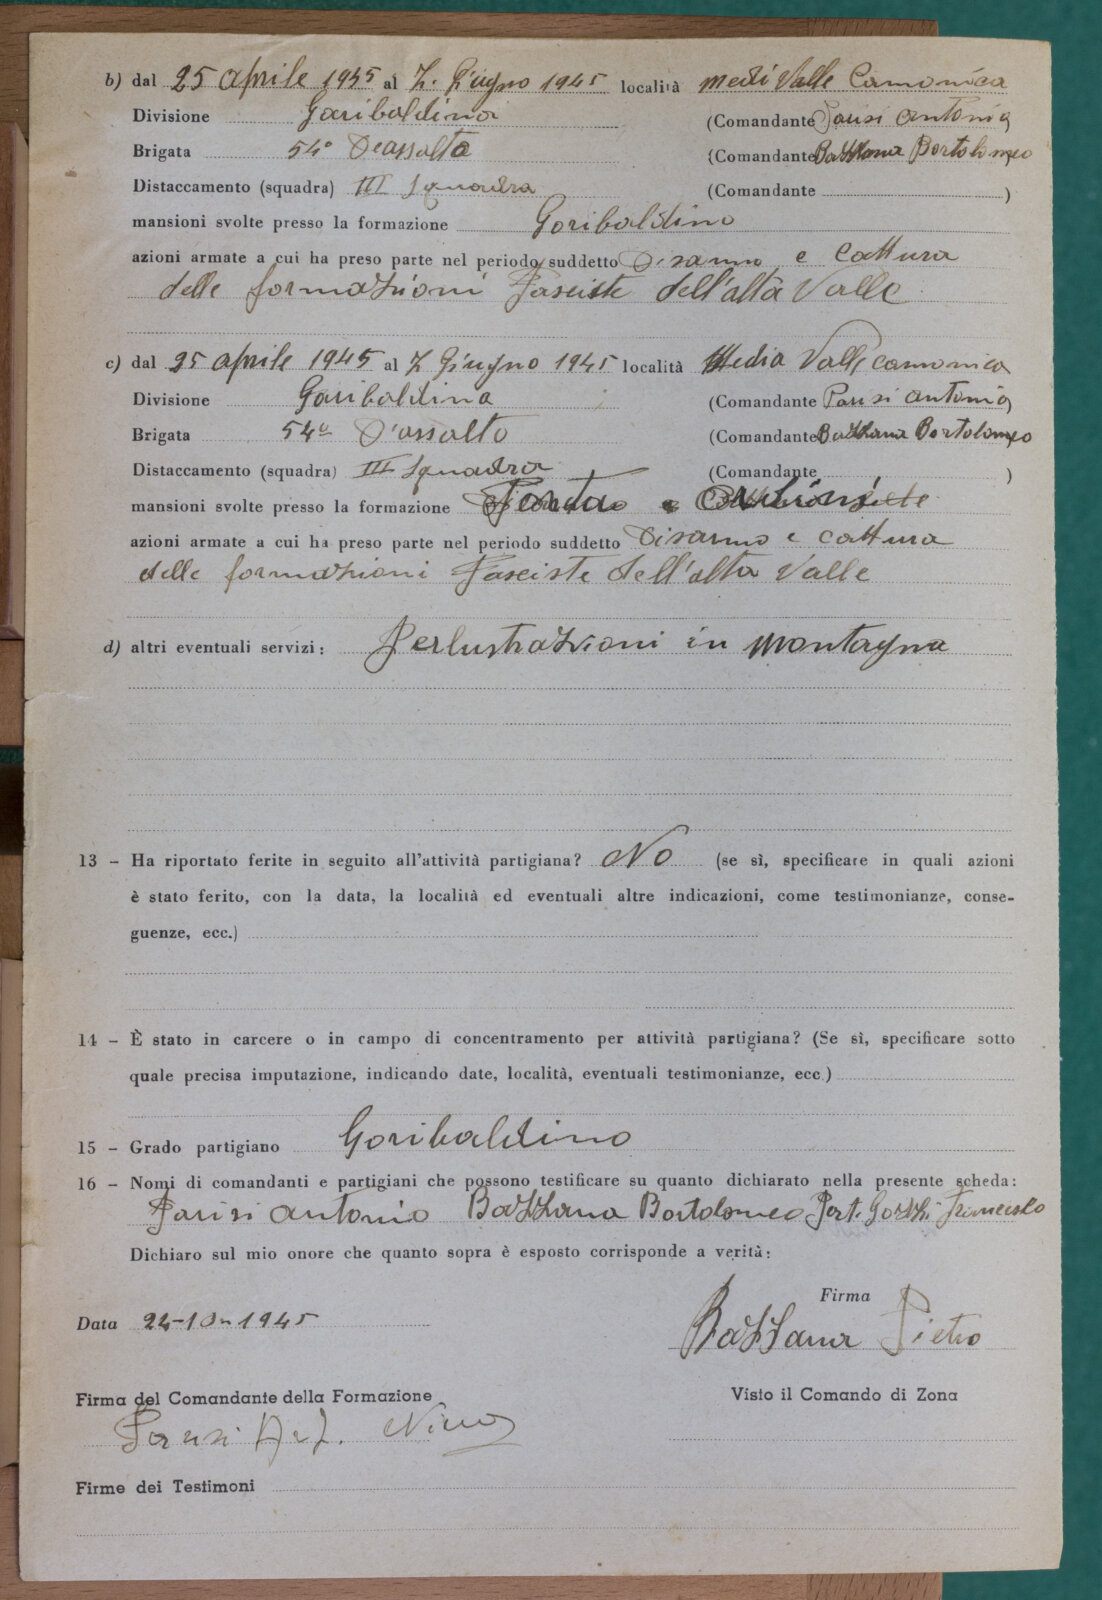 b) dal 25 aprile 1945 al 7. Giugno 1945 località medi Valle Camonica
Divisione Garibaldina (Comandante Parisi Antonio)
Brigata 54° D'assalto (Comandante Bazzana Bortolomeo
Distaccamento (squadra) III Squadra (Comandante )
mansioni svolte presso la formazione Garibaldino
azioni armate a cui ha preso parte nel periodo suddetto Disarmo e cattura
delle formazioni Fasciste dell'alta Valle
c) dal 25 aprile 1945 al 7 Giugno 1945 località Media Valle camonica
Divisione Garibaldina (Comandante Parisi Antonio)
Brigata 54a D'assalto (Comandante Bazzana Bortolomeo
Distaccamento (squadra) III Squadra (Comandante )
mansioni svolte presso la formazione e
azioni armate a cui ha preso parte nel periodo suddetto Disarmo e cattura
delle formazioni Fasciste dell'alta Valle
d) altri eventuali servizi: Perlustrazioni in montagna
13 - Ha riportato ferite in seguito all'attività partigiana? No (se sì, specificare in quali azioni
è stato ferito, con la data, la località ed eventuali altre indicazioni, come testimonianze, conse-
guenze, ecc.)
14 - È stato in carcere o in campo di concentramento per attività partigiana? (Se sì, specificare sotto
quale precisa imputazione, indicando date, località, eventuali testimonianze, ecc.)
15 - Grado partigiano Garibaldino
16 - Nomi di comandanti e partigiani che possono testificare su quanto dichiarato nella presente scheda:
Parisi Antonio Bazzana Bortolomeo Part. Francesco
Dichiaro sul mio onore che quanto sopra è esposto corrisponde a verità:
Firma
Data 24-10-1945 Bazzana Pietro
Firma del Comandante della Formazione Visto il Comando di Zona
Parisi Nino
Firme dei Testimoni